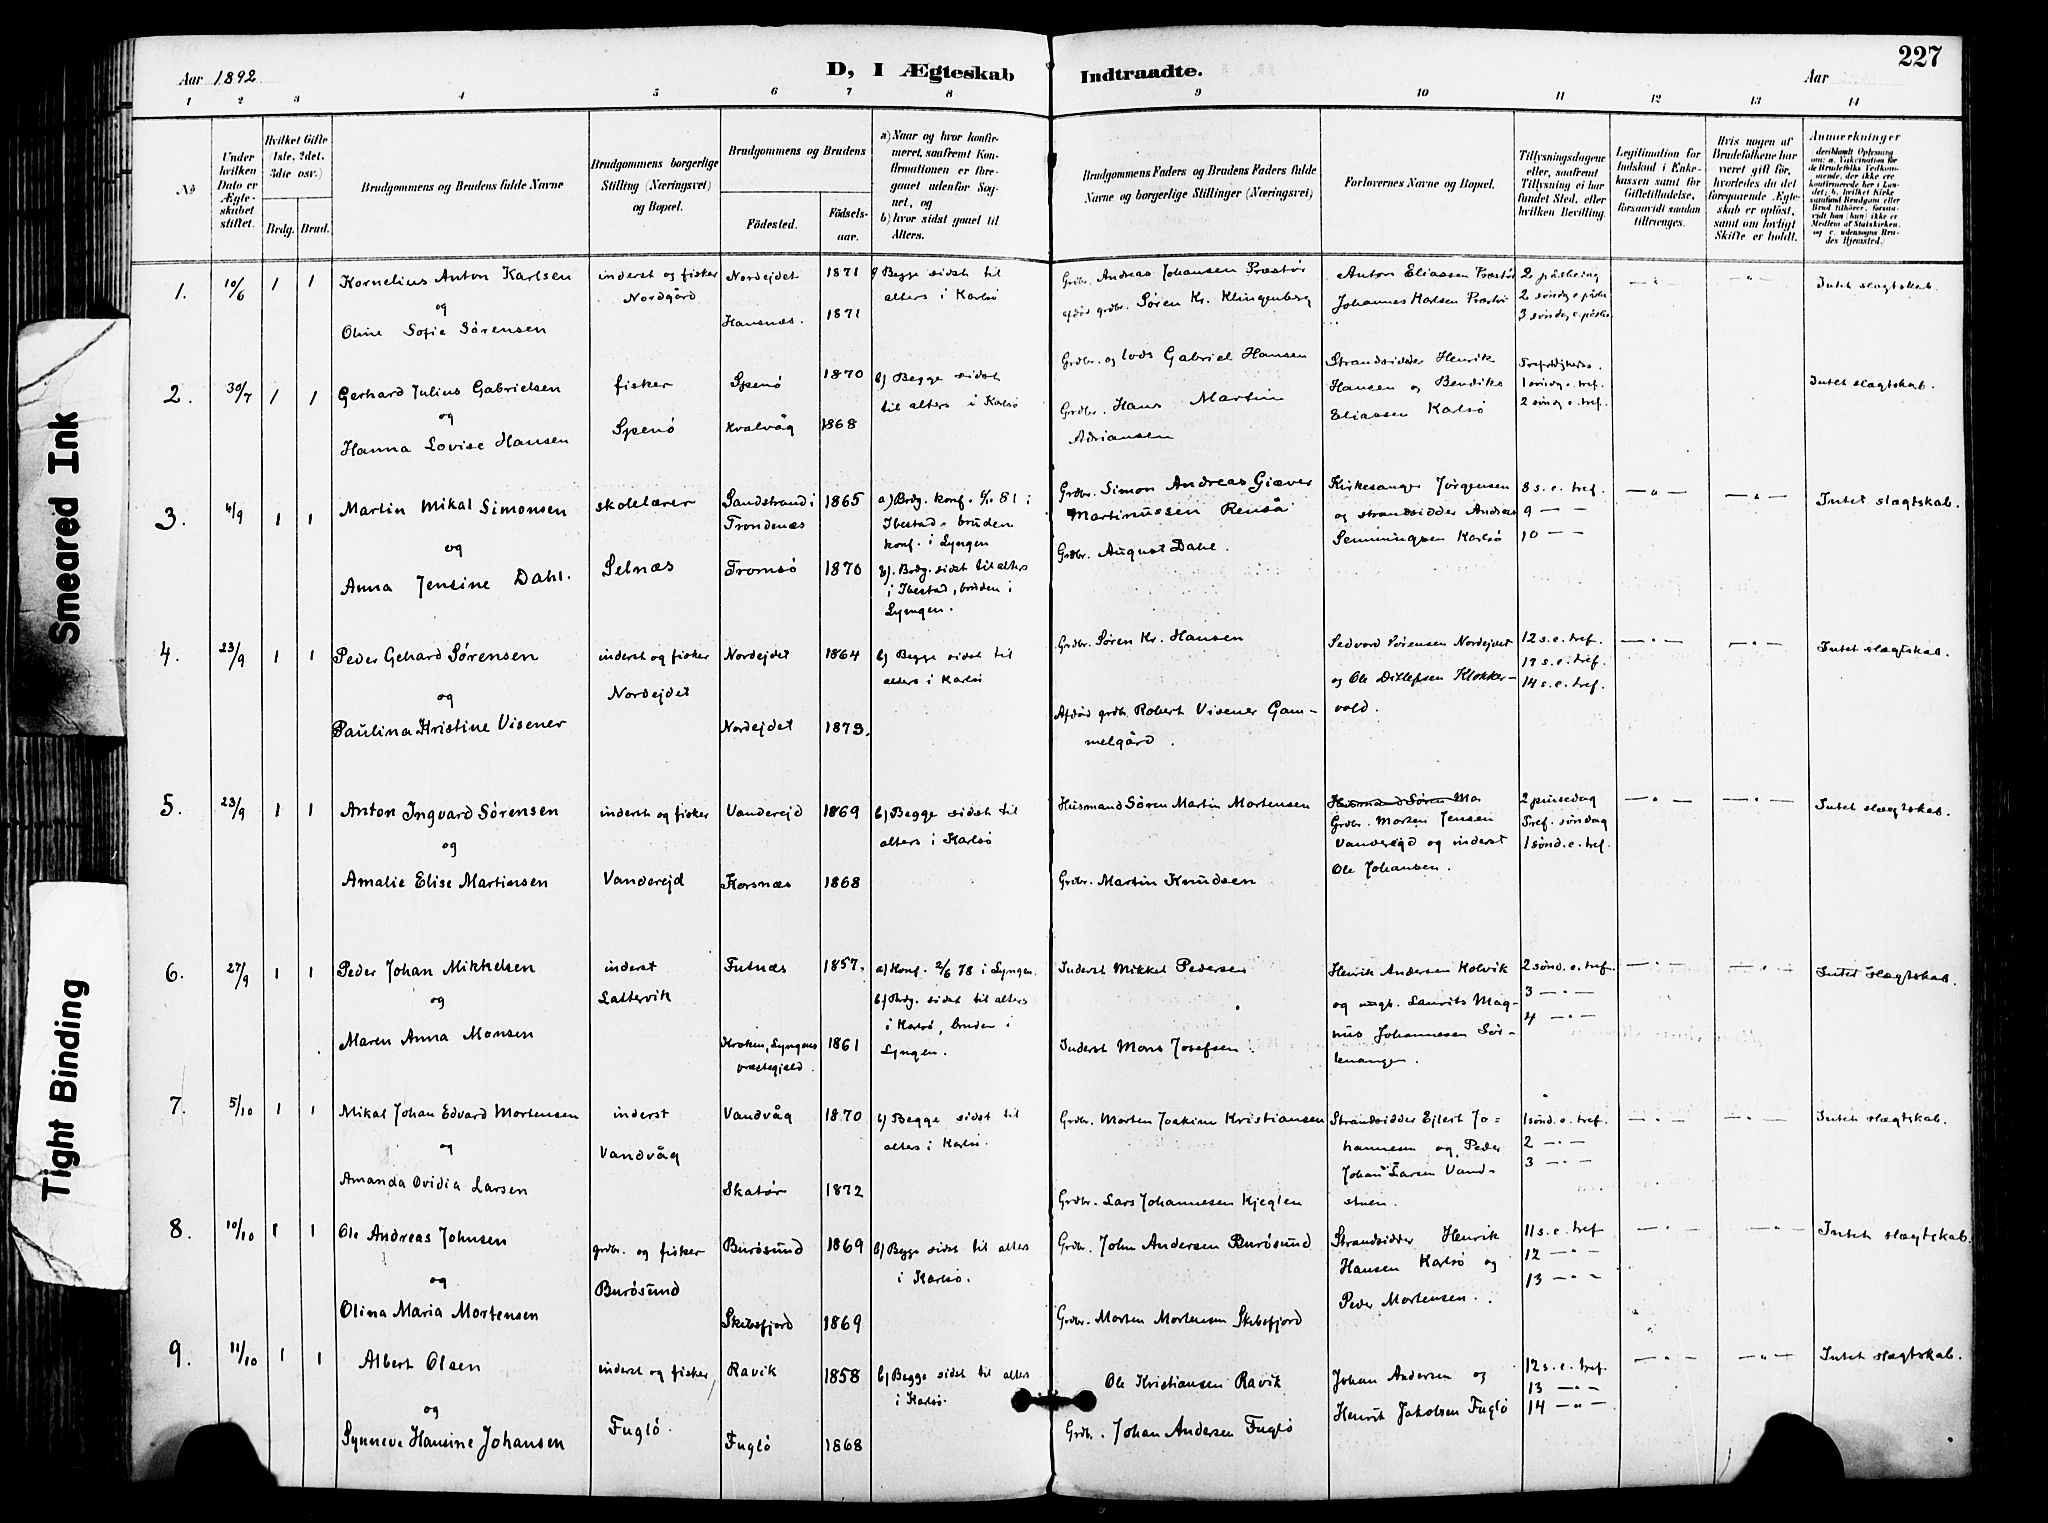 227
Aar 1892
D, I Ægteskab Indtraadte.
Aar
1 2 3 4 5 6 7 8 9 10 11 12 13 14
No
Under hvilken Dato er Ægteskabet stiftet.
Hvilket Gifte (1ste, 2det, 3die osv.)
Brdg. Brud.
Brudgommens og Brudens fulde Navne
Brudgommens borgerlige Stilling (Næringsvei) og Bopæl.
Brudgommens og Brudens
Födested.
Födselsaar.
a) Naar og hvor konfirmeret, saafremt Konfirmationen er foregaaet udenfor Sognet, og
b) hvor sidst gaaet til Alters.
Brudgommens Faders og Brudens Faders fulde Navne og borgerlige Stillinger (Næringsvei)
Forlovernes Navne og Bopæl.
Tillysningsdagene eller, saafremt Tillysning ei har fundet Sted, efter hvilken Bevilling.
Legitimation for Indskud i Enkekassen samt for Giftetilladelse, forsaavidt saadan tiltrænges.
Hvis nogen af Brudefolkene har været gift för, hvorledes da det foregaaende Ægteskab er oplöst, samt om lovligt Skifte er holdt.
Anmerkninger
1. 10/6 1 1
Kornelius Anton Karlsen
og
Oline Sofie Sørensen
inderst og fisker
Nordgård
Nordejdet 1871
Hansnæs. 1871
Begge sidst til
alters i Karlsø
Grdbr. Andreas Johansen Præstør
afdød grdbr. Søren Kr. Klingenberg
Anton Eliassen Præstø
Johannes Præstø
2 påskedag
2 søndag e. påske
3 søndag e. påske
Intet slægtskab.
2. 30/7 1 1
Gerhard Julius Gabrielsen
og
Hanna Lovise Hansen
fisker
Spenø
Spenø 1870
Kvalvåg 1868
b) Begge sidst
til alters i Karlsø
Grdbr. og lods Gabriel Hansen
Grdbr. Hans Martin
Adriansen
Strandsidder Henrik
Hansen og Bendiks
Eliassen Karlsø
1 søndg e. tref.
2 søndg e. tref.
Intet slægtskab.
3. 4/9 1 1
Martin Mikal Simonsen
og
Anna Jensine Dahl.
skolelærer
Selnæs
Sandstrand i
Trondenæs 1865
Tromsø 1870
a) Brdg. konf. 81 i
Ibestad, bruden
konf. i Lyngen
b) Brdg. sidst til alters
i Ibestad, bruden i
Lyngen.
Grdbr. Simon Andreas Giæver
Martinussen Renså
Grdbr. August Dahl.
Kirkesanger Jørgensen
og strandsidder Andreas
Senningsen Karlsø
8 s. e. tref.
9 — —
10 — —
— " —
— " —
Intet slægtskab.
4. 23/9 1 1
Peder Gehard Sørensen
og
Paulina Kristine Visener
inderst og fisker
Nordejdet
Nordejdet 1864
Nordejdet 1873.
b) Begge sidst til
alters i Karlsø
Grdbr. Søren Kr. Hansen
Afdød grdbr. Robert Visener Gam-
melgård.
Sedvord Sørensen Nordejdet
og Ole Ditlefsen Klokker-
vold.
12 s. e. tref.
13 s. e. tref.
14 s. e. tref.
— " —
— " —
Intet slægtskab.
5. 23/9 1 1
Anton Ingvard Sørensen
og
Amalie Elise Martinsen
inderst og fisker
Vanderejd
Vanderejd 1869
Korsnæs 1868
b) Begge sidst til
alters i Karlsø
Husmand Søren Martin Mortensen
Grdbr. Martin Knudsen
Husmand Søren Ma
Grdbr. Morten Jensen
Vanderejd og inderst
Ole Johansen.
2 pinsedag
Tref. søndag
1 sønd. e. tref.
— " —
— " —
Intet slægtskab.
6. 27/9 1 1
Peder Johan Mikkelsen
og
Maren Anna Monsen
inderst
Lattervik
Futnæs 1857.
Kroken, Lyngens
præstegjeld. 1861
a) Konf. 2/6 78 i Lyngen.
b) Brdg. sidst til alters
i Karlsø, bruden i
Lyngen.
Inderst Mikkel Pedersen
Inderst Mons Josefsen.
Henrik Andersen Kolvik
og ungk. Laurits Mag-
nus Johannesen Sør-
lenangen.
2 sønd. e. tref.
3 — " —
4 — " —
— " —
— " —
Intet slægtskab.
7. 5/10 1 1
Mikal Johan Edvard Mortensen
og
Amanda Ovidia Larsen
inderst
Vandvåg
Vandvåg 1870
Skatør 1872
b) Begge sidst til
alters i Karlsø.
Grdbr. Morten Joakim Kristiansen
Grdbr. Lars Johannesen Kjeglen
Strandsidder Ejlert Jo-
hannesen og Peder
Johan Larsen Vand-
stuen.
1 sønd. e. tref.
2 — " —
3 — " —
— " —
— " —
Intet slægtskab.
8. 10/10 1 1
Ole Andreas Johnsen
og
Olina Maria Mortensen
grdbr. og fisker
Burøsund
Burøsund 1869
Skibsfjord 1869
b) Begge sidst til alters
i Karlsø.
Grdbr. John Andersen Burøsund
Grdbr. Morten Mortensen Skibsfjord
Strandsidder Henrik
Hansen Karlsø og
Peder Mortensen.
11 s. e. tref
12 — " —
13 — " —
— " —
— " —
Intet slægtskab.
9. 11/10 1 1
Albert Olsen
og
Synneve Hansine Johansen
inderst og fisker,
Fuglø.
Ravik 1858
Fuglø 1868
b) Begge sidst til alters
i Karlsø.
Ole Kristiansen Ravik
Grdb. Johan Andersen Fuglø
Johan Andersen og
Henrik Jakobsen Fuglø
12 s. e. tref.
13 — " —
14 — " —
— " —
— " —
Intet slægtskab.
Smeared Ink
Tight Binding